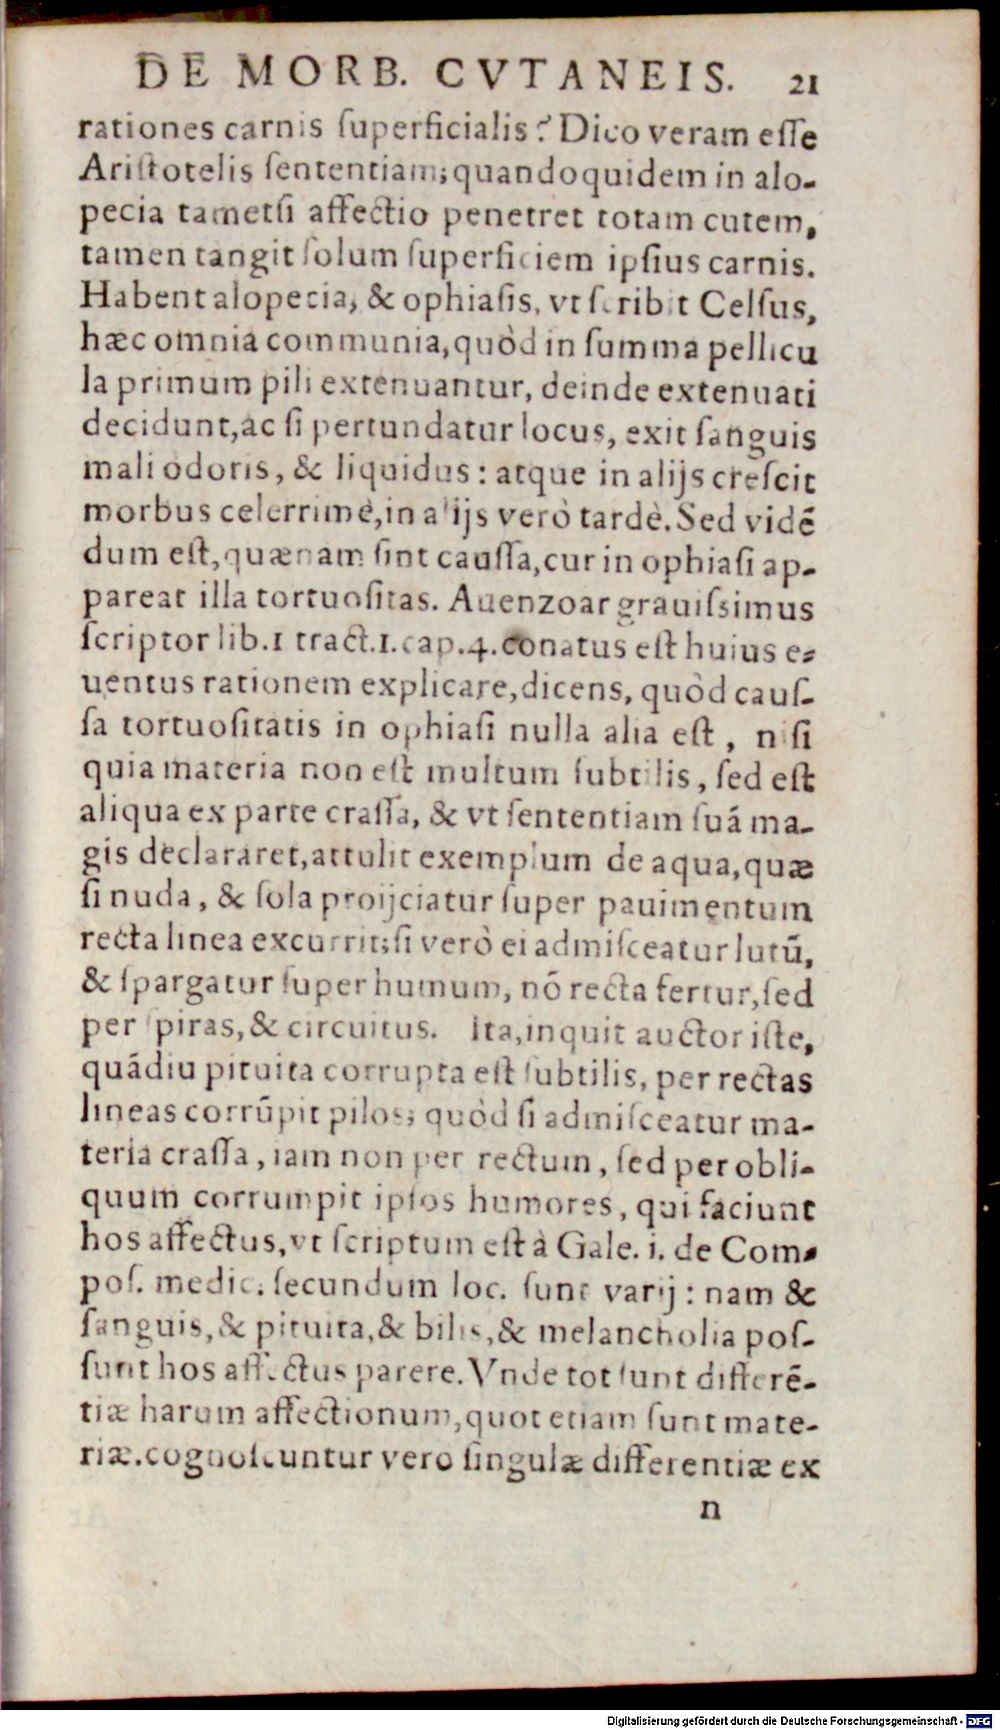 DE MORB. CVTANEIS. 21
rationes carnis ſuperficialis? Dico veram eſſe
Ariſtotelis ſententiam; quandoquidem in alo-
pecia tametſi affectio penetret totam cutem,
tamen tangit ſolum ſuperficiem ipſius carnis.
Habent alopecia, & ophiaſis, vt ſcribit Celſus,
hæc omnia communia, quòd in ſumma pellicu
la primum pili extenuantur, deinde extenuati
decidunt, ac ſi pertundatur locus, exit ſanguis
mali odoris, & liquidus: atque in alijs creſcit
morbus celerrimè, in alijs verò tardè. Sed vidē
dum eſt, quænam ſint cauſſa, cur in ophiaſi ap-
pareat illa tortuoſitas. Auenzoar grauiſsimus
ſcriptor lib. 1 tract. 1. cap. 4. conatus eſt huius e-
uentus rationem explicare, dicens, quòd cauſ-
ſa tortuoſitatis in ophiaſi nulla alia eſt, niſi
quia materia non eſt multum ſubtilis, ſed eſt
aliqua ex parte craſſa, & vt ſententiam ſuā ma-
gis declararet, attulit exemplum de aqua, quæ
ſi nuda, & ſola proijciatur ſuper pauimentum
recta linea excurrit; ſi verò ei admiſceatur lutū,
& ſpargatur ſuper humum, nō recta fertur, ſed
per ſpiras, & circuitus. Ita, inquit auctor iſte,
quādiu pituita corrupta eſt ſubtilis, per rectas
lineas corrūpit pilos; quòd ſi admiſceatur ma-
teria craſſa, iam non per rectum, ſed per obli-
quum corrumpit ipſos humores, qui faciunt
hos affectus, vt ſcriptum eſt à Gale. i. de Com-
poſ. medic. ſecundum loc. ſunt varij: nam &
ſanguis, & pituita, & bilis, & melancholia poſ-
ſunt hos affectus parere. Vnde tot ſunt differē-
tiæ harum affectionum, quot etiam ſunt mate-
riæ. cognoſcuntur vero ſingulæ differentiæ ex
n
Digitalisierung gefördert durch die Deutsche Forschungsgemeinschaft - DFG